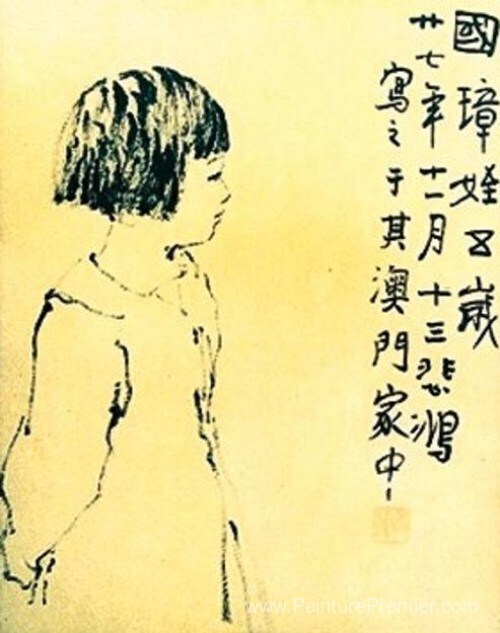 國璋姪五歲
廿七年十一月十三悲鴻
寫之于其澳門家中
www.PeinturePremier.com